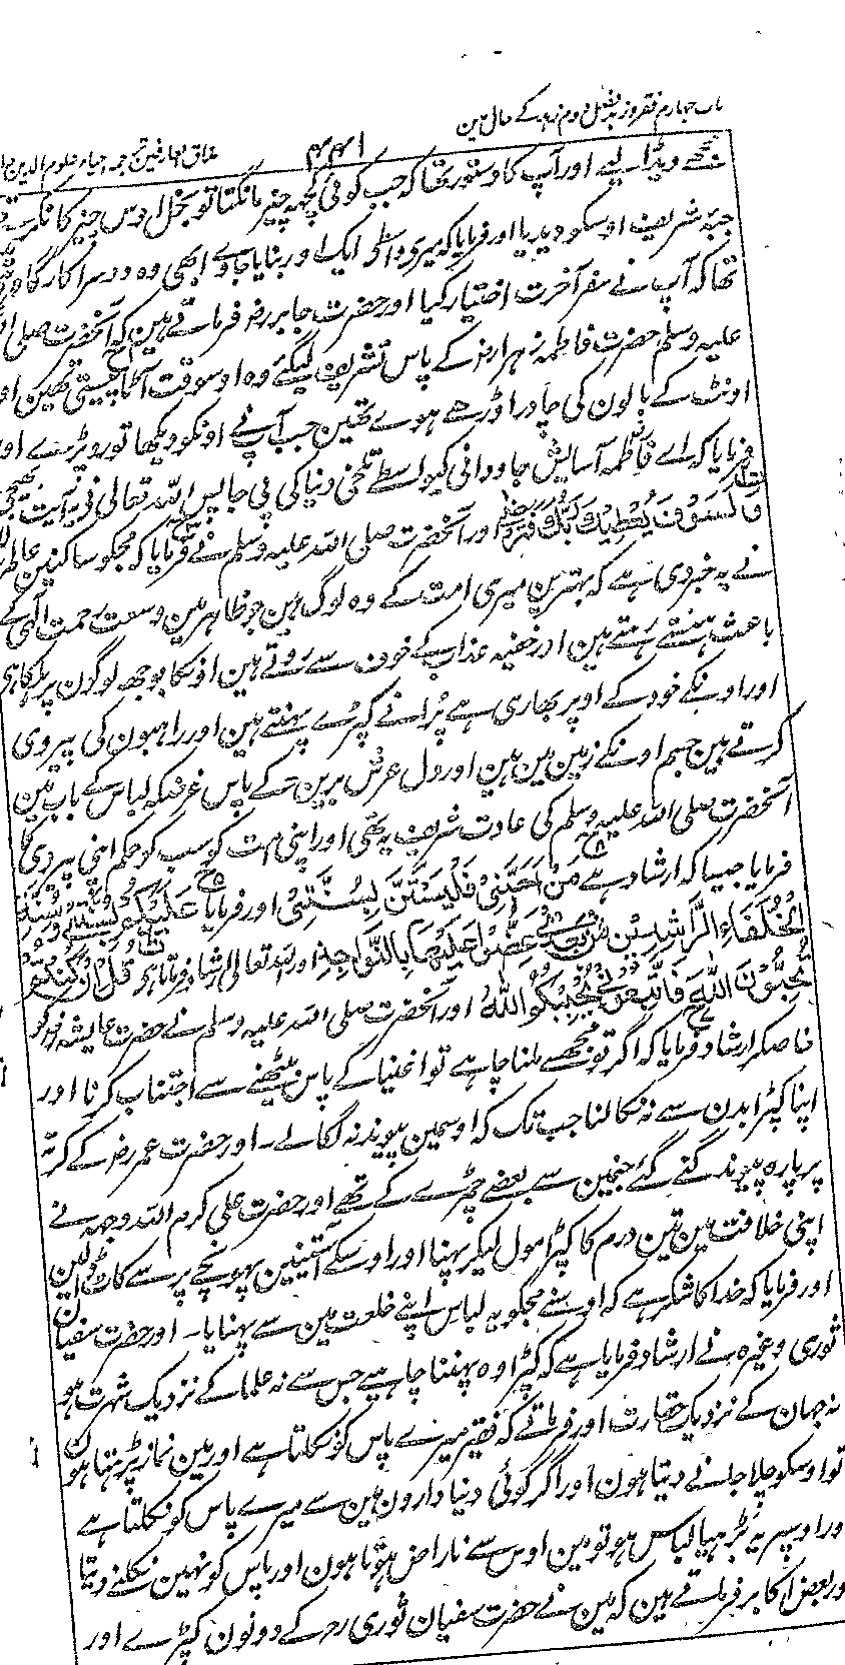 باب چہارم فقر و زہد فصل دوم زہد کے حال مین
مذاق العارفین ترجمہ احیاء علوم الدین
۴۴۱
مجھے دیڈالیے اور آپ کا دستور تھا کہ جب کوئی کچھہ چیز مانگتا تو بخل اوس چیز کا نکرتے
جبہ شریف اوسکو دیدیا اور فرمایا کہ میری واسطے ایک اور بنایا جاوے ابھی وہ دوسرا کارگاہ
تھا کہ آپ نے سفر آخرت اختیار کیا اور حضرت جابر رضہ فرماتے ہین کہ آنحضرت صلی
علیہ وسلم حضرت فاطمہ زہرا رضہ کے پاس تشریف لیگئے وہ اوسوقت آٹا پیستی تھین او
اونٹ کے بالون کی چادر اوڑھے ہوے تھین جب آپ نے اونکو دیکھا تو روپڑے اور
فرمایا کہ اے فاطمہ آسایش جاودانی کیواسطے تلخی دنیا کی پی جا پس اللہ تعالی نے یہ آیت بھیجی
وَلَسَوْفَ يُعْطِيكَ رَبُّكَ فَتَرْضَى اور آنحضرت صلی اللہ علیہ وسلم نے فرمایا کہ مجکو ساکنین عالم
نے یہ خبر دی ہے کہ بہترین میری امت کے وہ لوگ ہین جو ظاہر مین وسعت رحمت الٰہی کے
باعث ہنستے رہتے ہین اور خفیہ عذاب کے خوف سے روتے ہین اونکا بوجھہ لوگون پر ہلکا ہی
اور اونکے خود کے اوپر بھاری ہے پرانے کپڑے پہنتے ہین اور راہبون کی پیروی
کرتے ہین جسم اونکے زمین مین ہین اور دل عرش برین کے پاس غرضکہ لباس کے باب مین
آنحضرت صلی اللہ علیہ وسلم کی عادت شریف یہ تھی اور اپنی امت کو سب کو حکم اپنی پیروی کا
فرمایا جیسا کہ ارشاد ہے مَنْ اَحَبَّنِىْ فَلْيَسْتَنَّ بِسُنَّتِىْ اور فرمایا عَلَيْكُمْ بِسُنَّتِيْ وَسُنَّةِ
الْخُلَفَاءِ الرَّاشِدِيْنَ مِنْ بَعْدِيْ عَضُّوْا عَلَيْهَا بِالنَّوَاجِذِ اور اللہ تعالی ارشاد فرماتا ہی قُلْ اِنْ كُنْتُمْ
تُحِبُّوْنَ اللّٰهَ فَاتَّبِعُوْنِيْ يُحْبِبْكُمُ اللّٰهُ اور آنحضرت صلی اللہ علیہ وسلم نے حضرت عایشہ رضہ کو
خاصکر ارشاد فرمایا کہ اگر تو مجھسے ملنا چاہے تو اغنیا کے پاس بیٹھنے سے اجتناب کرنا اور
اپنا کپڑا بدن سے نہ نکالنا جب تک کہ اوسمین پیوند نہ لگالے۔ اور حضرت عمر رضہ کے کرتہ
پر بارہ پیوند گنے گئے جنمین سے بعضے چمڑے کے تھے اور حضرت علی کرم اللہ وجہہ نے
اپنی خلافت مین تین درم کا کپڑا مول لیکر پہنا اور اوسکے آستینین پہونچے پر سے کاٹ ڈالین
اور فرمایا کہ خدا کا شکر ہے کہ اوسنے مجکو یہ لباس اپنے خلعت مین سے پہنایا۔ اور حضرت سفیان
ثوری وغیرہ نے ارشاد فرمایا ہے کہ کپڑا وہ پہننا چاہیے جس سے نہ علما کے نزدیک شہرت ہو
نہ جہان کے نزدیک حقارت اور فرماتے کہ فقیر میرے پاس کو نکلتا ہے اور مین نماز پڑہتا ہون
تو اوسکو چلا جانے دیتا ہون اور اگر کوئی دنیا دارون مین سے میرے پاس کو نکلتا ہے
ور اوسپر یہ بڑہیا لباس ہو تو مین اوس سے ناراض ہوتا ہون اور پاس کو نہین نکلنے دیتا
ور بعض اکابر فرماتے ہین کہ مین نے حضرت سفیان ثوری رحہ کے دونون کپڑے اور